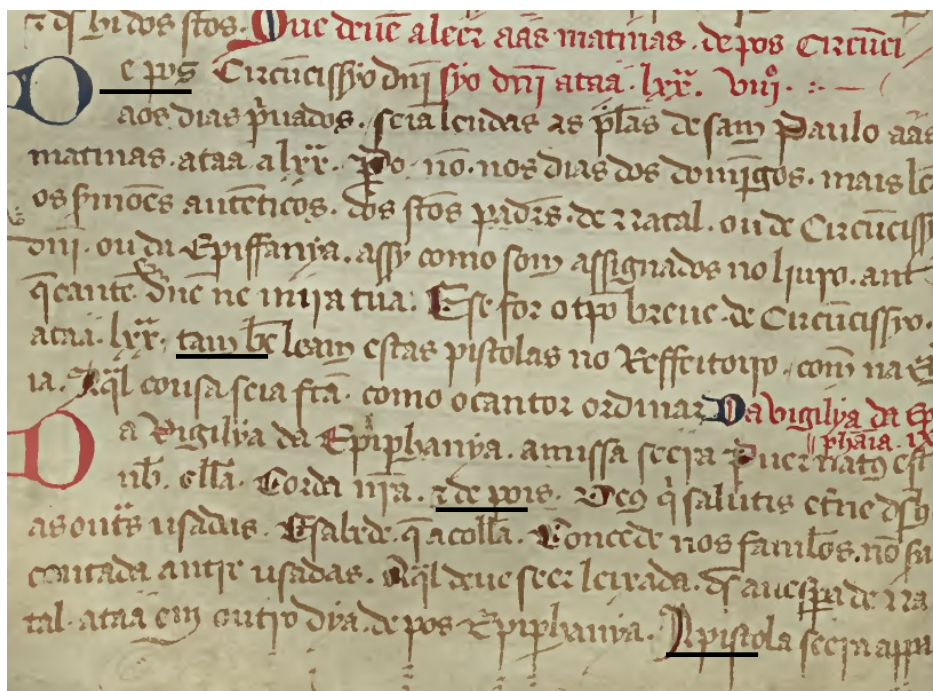 ⁊ dꝭ hi dos sc̃os. Que deuẽ a leer aas matinas. de pos Circũci
De pos Circũcissyõ dnĩ syo dnĩ ataa. lxx. viij.
aos dias p̃uados. seia lendas as p̃las de sam Paulo aas
matinas. ataa a lxx. Po. nõ. nos dias dos domĩgos. mais
os s̃mões autẽticos. dos sc̃os padres. de natal. ou de Circũcissy
dnĩ. ou da Epiffanya. assy como som assignados no liuro. ant
q̃ cantẽ dñe ne in ira tua. E se for o tpõ breue. de Circũcissyo.
ataa. lxx. tam bẽ leam estas pistolas no Reffertoiro. com̃ na
ia. Aq̃l cousa seia fc̃a. como o cantor ordinar Da vigilya da Ep
phãia. ix
Da Vigilya da Epiphanya. a missa seera Puer natꝰ est
nb̃. ell̃a. Torda nr̃a. ⁊ de pois. Deꝰ q̃ salutis et̃ne
as outras usadas. E sabede. q̃ a coll̃a. Concede nos famul̃os. nõ
contada antre usadas. Aq̃l deue seer leixada. dꝭ a uespera de na
tal. ataa em outro dya. de pos Epiphanya. A pistola seera